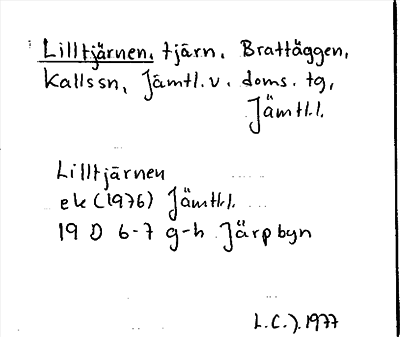 Lilltjärnen, tjärn. Brattäggen,
Kallssn, Jämtl.v. doms. tg,
Jämtl.l.
Lilltjärnen
ek (1976) Jämtl.l.
19 D 6-7 g-h Järpbyn
L.C.J. 1977